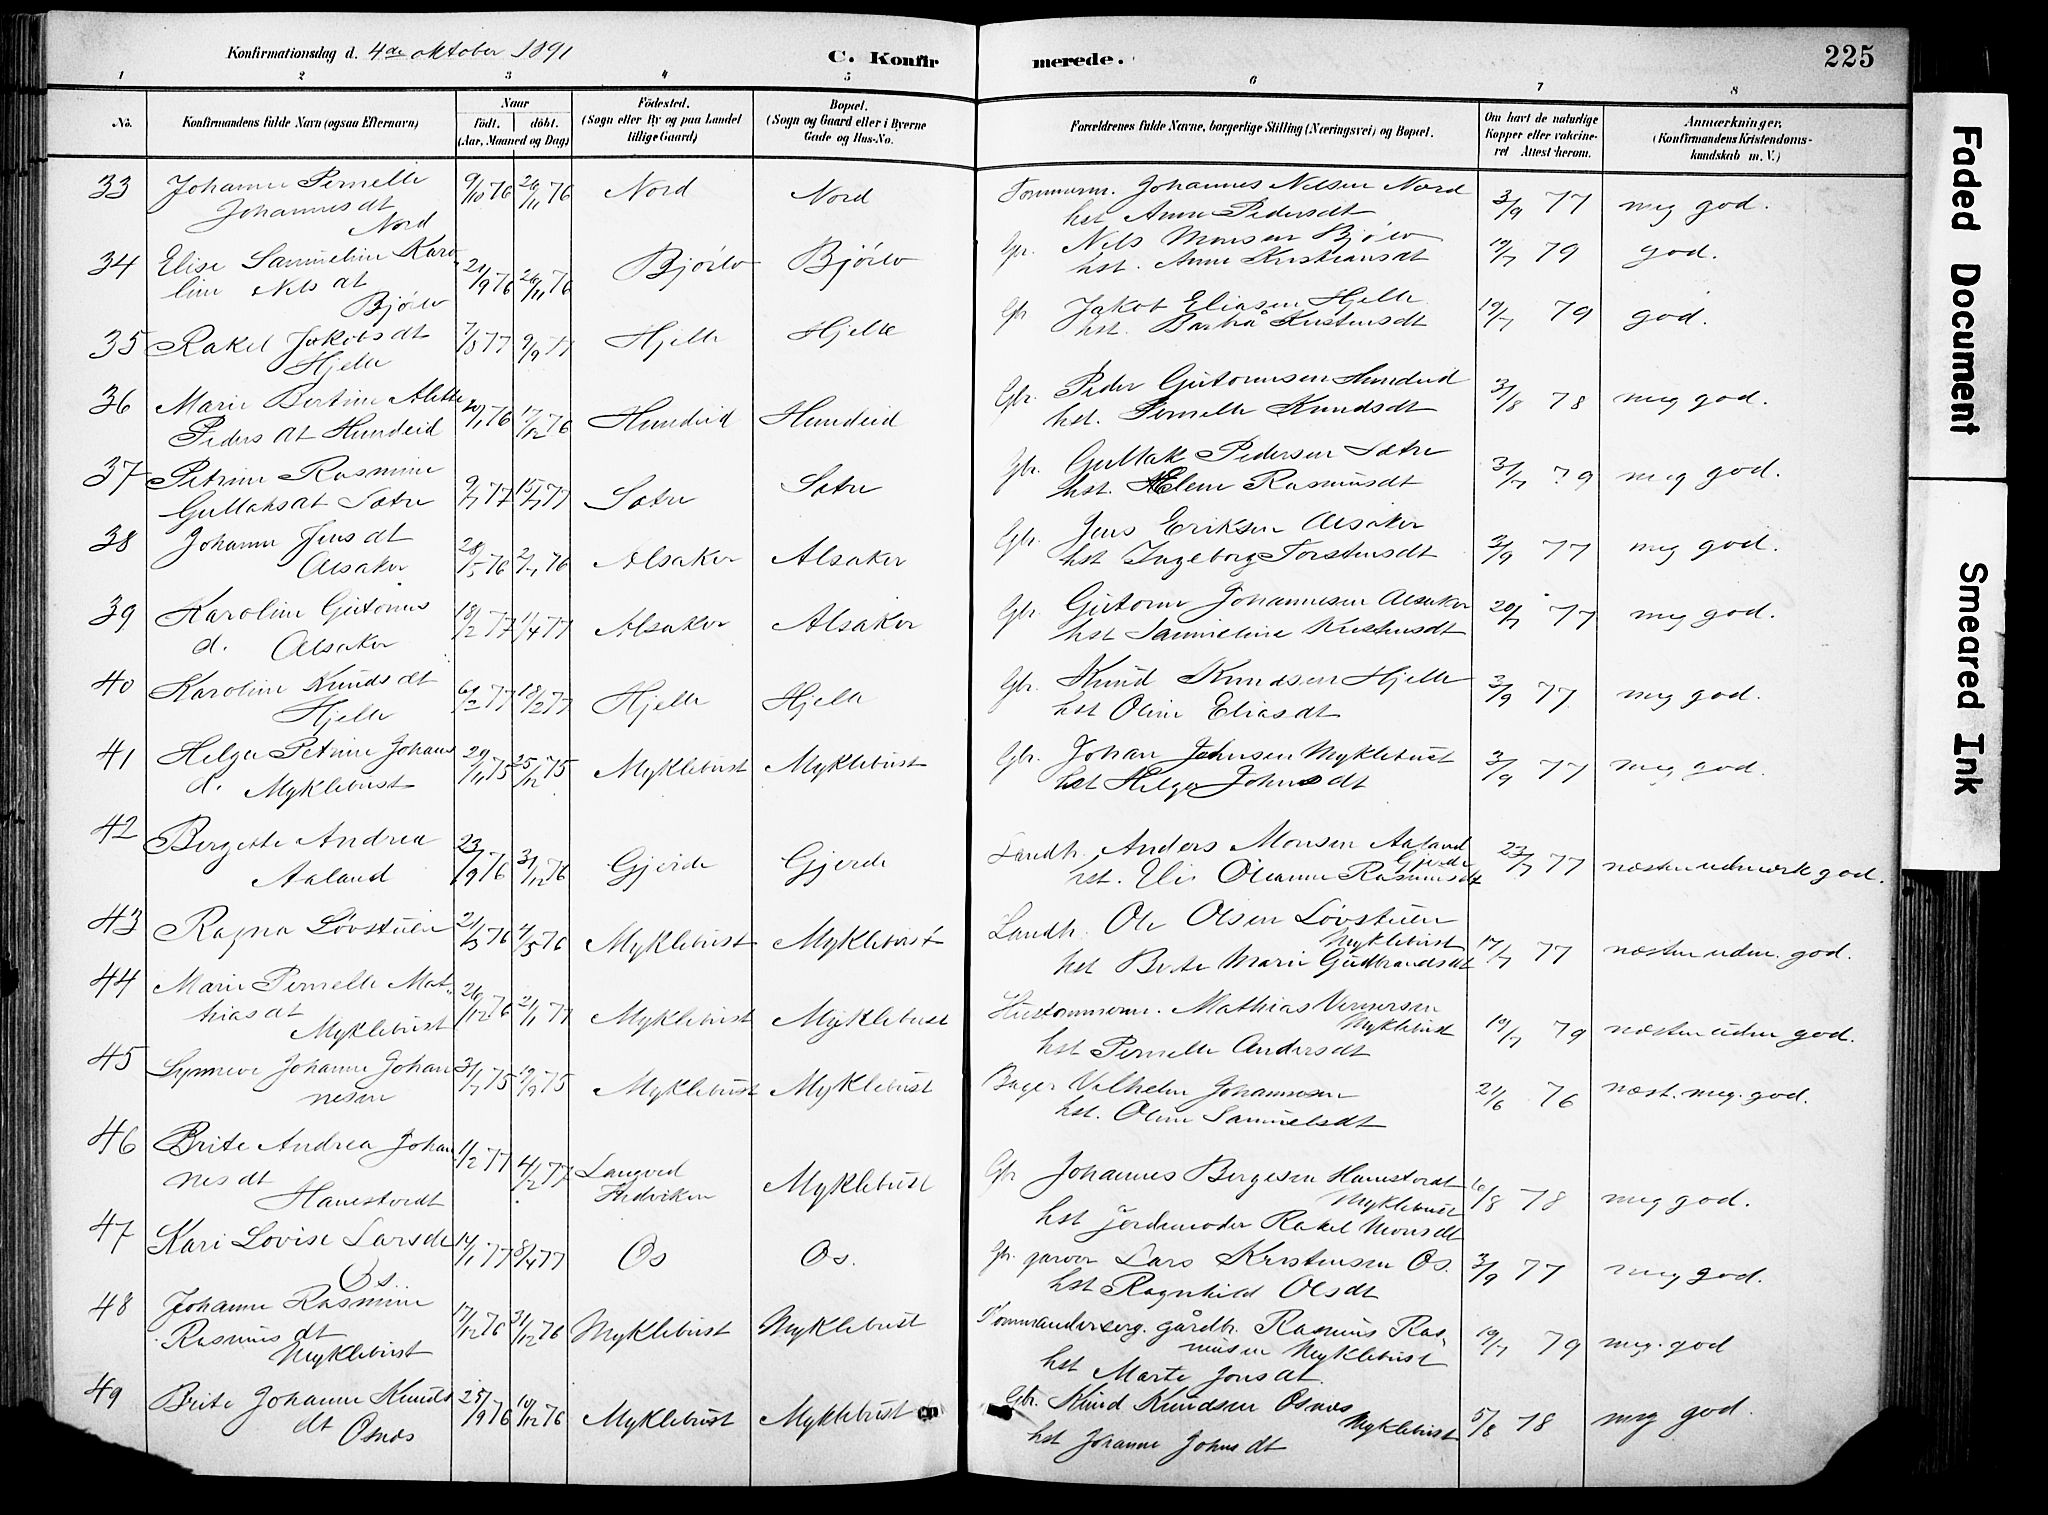 Konfirmationsdag d. 4de oktober 1891
C. Konfirmerede.
225
1 2 3 4 5 6 7 8
No.
Konfirmandens fulde Navn (ogsaa Efternavn)
Naar
født. døbt.
(Aar, Maaned og Dag)
Fødested.
(Sogn eller By og paa Landet
tillige Gaard)
Bopæl.
(Sogn og Gaard eller i Byerne
Gade og Hus-No.
Forældrenes fulde Navne, borgerlige Stilling (Næringsvei) og Bopæl.
Om havt de naturlige
Kopper eller vakcineret
Attest herom.
Anmærkninger,
(Konfirmandens Kristendomskundskab
m. V.)
33 Johanne Pernelle 9/10 76 26/11 76 Nord Nord Tømmerm. Johannes Nilsen Nord 3/9 77 meg god.
Johannesdt
Nord
hst Anne Pedersdt
34 Elise Samueline Karoline
Nilsdt
Bjørlo 21/9 76 26/11 76 Bjørlo Bjørlo Gbr. Nils Monsen Bjørlo 19/7 79 god.
hst. Anne Kristiansdt
35 Rakel Jakobsdt 7/5 77 9/9 77 Hjelle Hjelle Gbr Jakob Eliasen Hjelle 19/7 79 god.
Hjelle
hst. Barbrå Kristensdt
36 Marie Bertine Alette 20/1 76 17/12 76 Hundeid Hundeid Gbr. Peder Guttormsen Hundeid 3/8 78 meg god.
Pedersdt Hundeid
hst. Pernelle Knudsdt
37 Petrine Rasmine 9/7 77 15/7 77 Sætre Sætre Gbr. Gullak Pedersen Sætre 31/7 79 meg god.
Gullaksdt Sætre
hst. Elene Rasmusdt
38 Johanne Jensdt 28/5 76 2/7 76 Alsaker Alsaker Gbr. Jens Eriksen Alsaker 3/9 77 meg god.
Alsaker
hst Ingeborg Torstensdt
39 Karoline Guttorms 18/2 77 11/4 77 Alsaker Alsaker Gbr. Guttorm Johannesen Alsaker 20/7 77 meg god.
d. Alsaker
hst Samueline Kristensdt
40 Karoline Knudsdt 6/2 77 18/2 77 Hjelle Hjelle Gbr. Knud Knudsen Hjelle 3/9 77 meg god.
Hjelle
hst Oline Eliasdt
41 Helga Petrine Johans 29/11 75 25/12 75 Myklebust Myklebust Gbr. Johan Johnsen Myklebust 3/9 77 meg god.
d. Myklebust
hst Helga Johnsdt
42 Bergette Andrea 23/9 76 31/12 76 Gjerde Gjerde Landh. Anders Monsen Aaland 23/7 77 næsten udmerk god.
Aaland
Gjerde
hst. Elis Oleanne Rasmusdt
43 Ragna Løvstuen 21/3 76 7/5 76 Myklebust Myklebust Landh. Ole Olsen Løvstuen
Myklebust 17/7 77 næsten udm. god.
hst Brite Marie Gudbrandsdt
44 Marie Pernelle Mathiasdt
Myklebust 26/12 76 21/1 77 Myklebust Myklebust Hustømmerm. Mathias Vernersen
Myklebust 19/7 79 næsten udm god.
hst Pernelle Andersdt
45 Synneve Johanne Johannesen 31/7 75 19/9 75 Myklebust Myklebust Bager Vilhelm Johannesen 21/6 76 næst. meg. god.
hst. Oline Samuelsdt
46 Brite Andrea Johannesdt
Hanestordt 1/2 77 4/2 77 Langved
Hedviken Myklebust Gbr Johannes Bergesen Hanestordt
Myklebust 6/8 78 meg god.
hst jordemoder Rakel Monsdt
47 Kari Lovise Larsdt 14/1 77 8/4 77 Os Os. Gbr. garver Lars Kristensen Os. 3/9 77 meg god.
Os.
hst Ragnhild Olsdt
48 Johanne Rasmine 17/12 76 31/12 76 Myklebust Myklebust Kommandersrg. gårdbr. Rasmus Rasmusen
Myklebust 19/7 79 meg. god
Rasmusdt
Myklebust
hst Marte Jonsdt.
49 Brite Johanne Knudsdt
Osnes 25/9 76 10/12 76 Myklebust Myklebust Gbr. Knud Knudsen Osnes
Myklebust 5/8 78 meg god.
hst Johanne Johnsdt
Faded Document
Smeared Ink